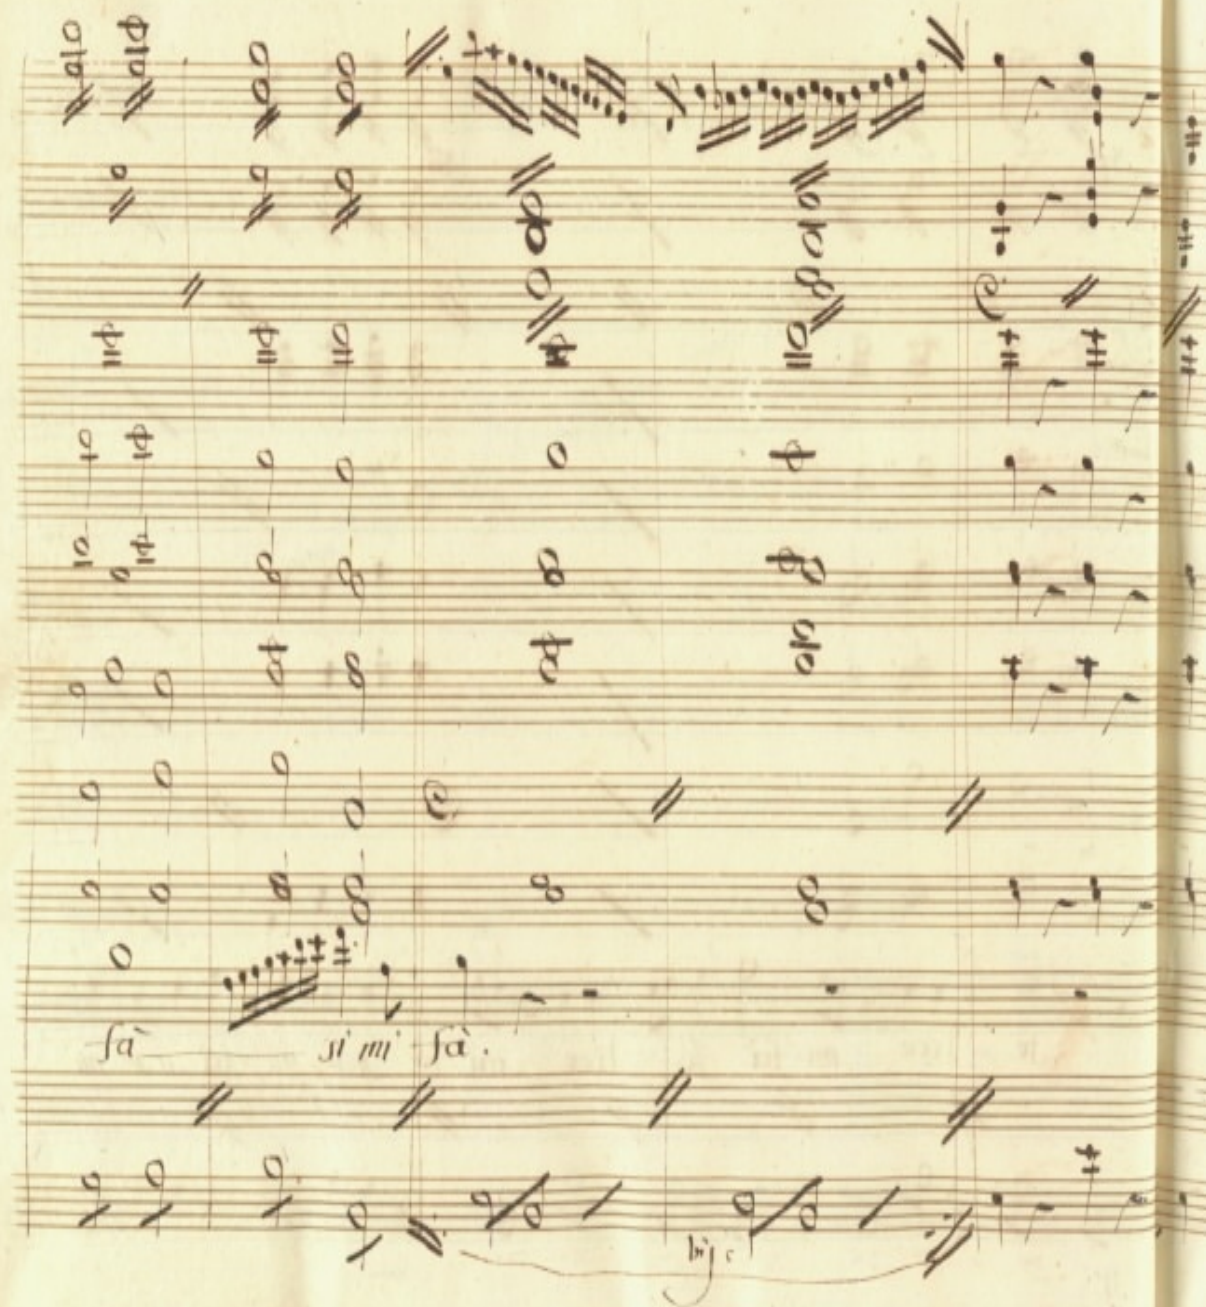 sà si mi sà.
bis